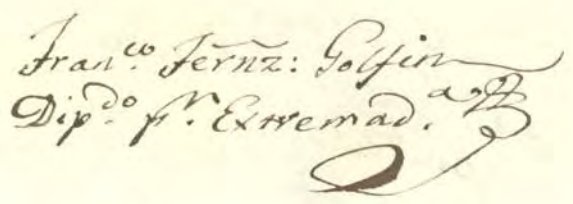 Fran.co Fern̄z: Golfin
Dip.do pr. Extremad.a